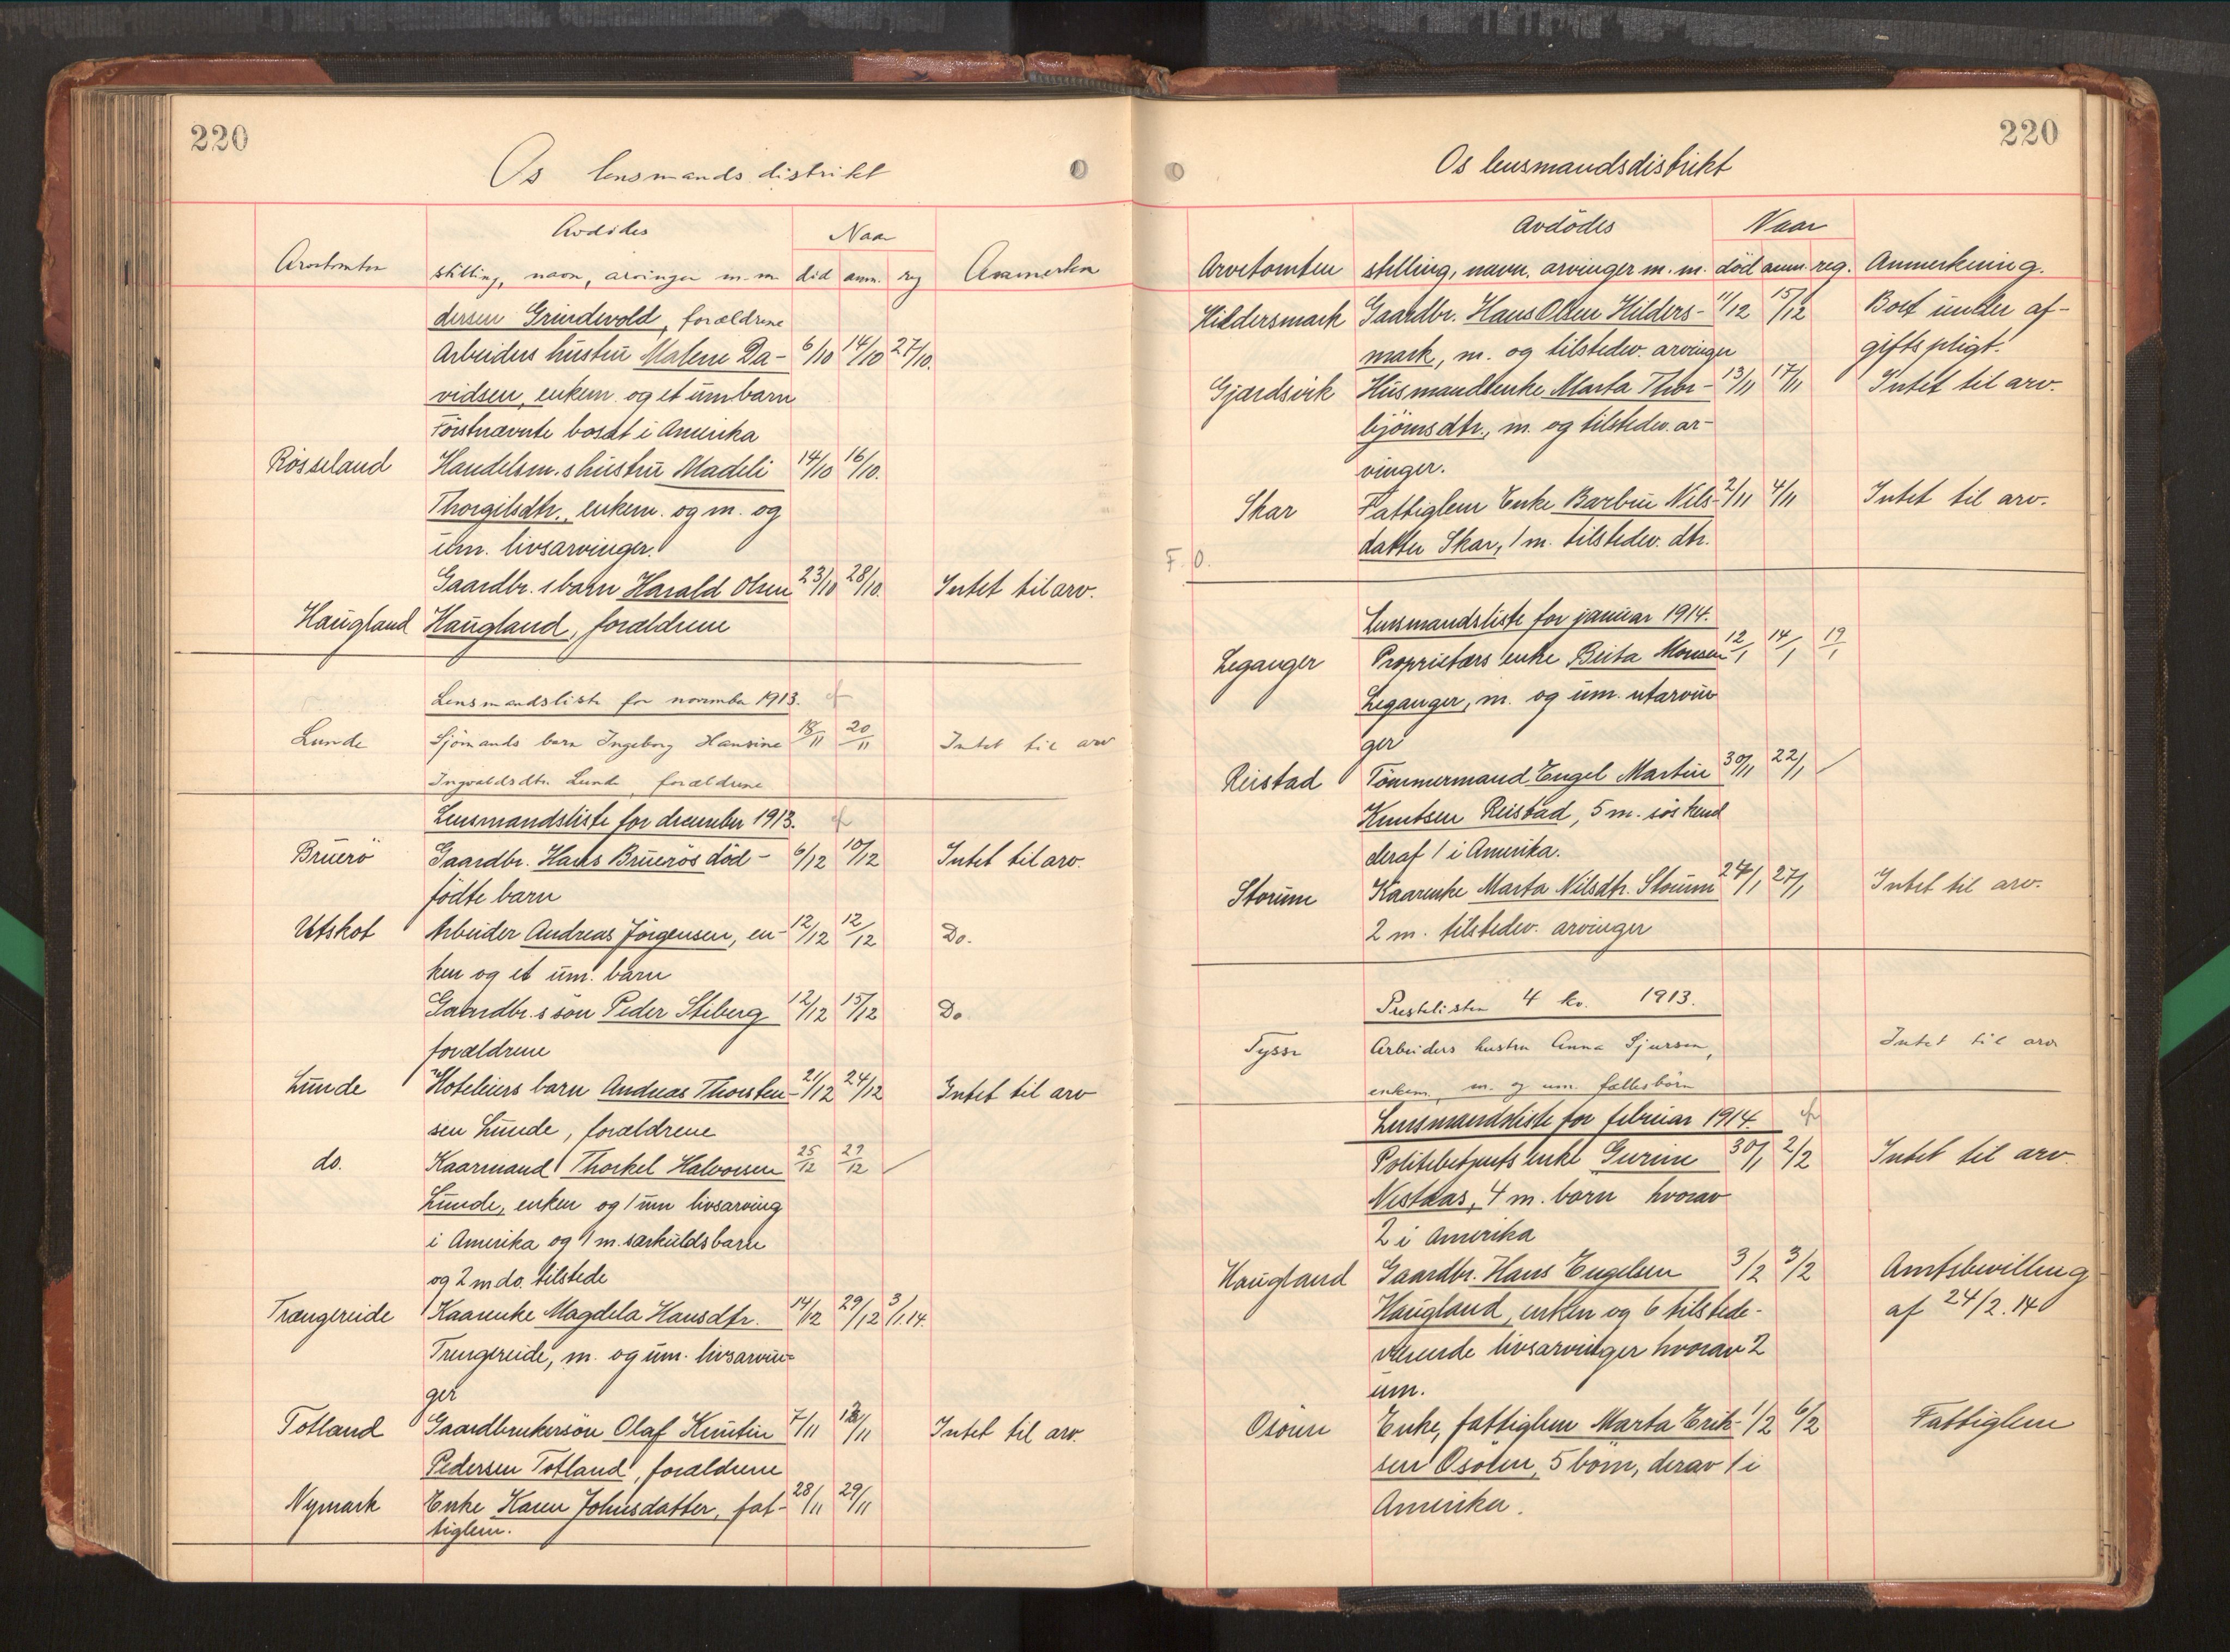 220
Os lensmands distrikt
Avdödes Naar
Arvetomten stilling, navn, arvinger m.m. död anm. reg Anmerkn
dersen Grindevold, forældrene
Arbeiders hustru Malene Da- 6/10 14/10 27/10.
vidsen, enkem. og et um barn
Förstnævnte bosat i Amerika
Røsseland Handelsm.s hustru Madeli 14/10 16/10.
Thorgilsdtr., enkem. og m. og
um. livsarvinger.
Gaardbr.s barn Harald Olsen 23/10 28/10. Intet til arv.
Haugland Haugland, forældrene
Lensmandsliste for november 1913.
Lunde Sjömands barn Ingeborg Hansine 18/11 20/11 Intet til arv
Ingvaldsdtr. Lunde, forældrene
Lensmandsliste for december 1913.
Bruerö Gaardbr. Hans Bruerös död- 6/12 10/12 Intet til arv.
födte barn
Utskot Arbeider Andreas Jörgensen, en- 12/12 12/12 Do.
ken og et um. barn
Gaardbr.s sön Peder Stiberg 12/12 15/12 Do
forældrene
Lunde Hoteleiers barn Andreas Thorsten- 21/12 24/12 Intet til arv
sen Lunde, forældrene
do. Kaarmand Thorkel Halvorsen 25/12 29/12 /
Lunde, enken og 1 um livsarving
i Amerika og 1 m. særkuldsbarn
og 2 m do. tilstede
Trængereide Kaarenke Magdela Hansdtr. 14/12 29/12 3/1.14.
Trengereide, m. og um. livsarvin-
ger
Totland Gaardbrukersön Olaf Knutin 7/11 13/11 Intet til arv.
Pedersen Totland, forældrene
Nymark Enke Karen Johnsdatter, fat- 28/11 29/11
tiglem.
220
Os lensmandsdistrikt
Avdödes Naar
Arvetomten stilling, navn, arvinger m.m. död anm. reg. Anmerkning.
Hildersmark Gaardbr. Hans Olsen Hilders- 11/12 15/12 Bolt under af-
mark, m. og tilstedev. arvinger giftspligt.
Gjærdsvik Husmandsenke Marta Thor- 13/11 17/11 Intet til arv.
björnsdtr., m. og tilstedev. ar-
vinger.
Skar Fattiglem Enke Barbru Nils- 2/11 4/11 Intet til arv.
datter Skar, 1 m. tilstedev. dtr.
F.O.
Lensmandsliste for januar 1914.
Leganger Proprietærs enke Brita Monsen 12/1 14/1 19/1
Leganger, m. og um. utarvin
ger
Reistad Tömmermand Engel Martin 30/11 22/1 /
Knutsen Reistad, 5 m. söskend
deraf 1 i Amerika.
Storum Kaarenke Marta Nilsdtr. Storum 24/1 27/1 Intet til arv.
2 m. tilstedev. arvinger
Prestelisten 4 kv. 1913.
Tysse Arbeiders hustru Anna Sjursen, Intet til arv
enkem., m. og um. fællesbörn
Lensmandsliste for februar 1914.
Politibetjents enke Gurine 30/1 2/2 Intet til arv.
Nestaas, 4 m. barn hvorav
2 i Amerika
Haugland Gaardbr. Hans Engelsen 3/2 3/2 Amtsbevilling
Haugland, enken og 6 tilstede- af 24/2.14
værende livsarvinger hvorav 2
um.
Osören Enke, fattiglem Marta Erik- 1/2 6/2 Fattiglem
sen Osören, 5 börn, derav 1 i
Amerika.